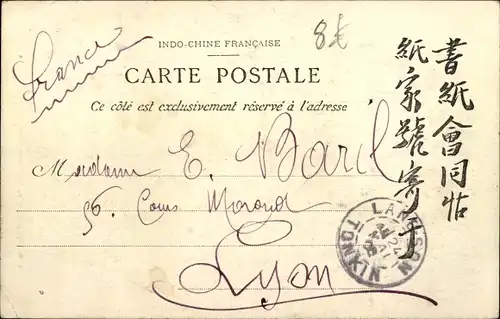 France
INDO-CHINE FRANÇAISE
8€
CARTE POSTALE
Ce côté est exclusivement réservé à l'adresse
Madame E. Baril
56. Cours Morand
Lyon
書紙會同帖
紙家號寄于
LANG-SON
TONKIN